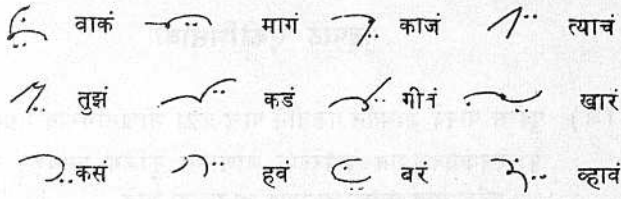 वाकं मागं काजं त्याचं
तुझं कडं गीत्रं खारं
कसं हवं बरं व्हावं